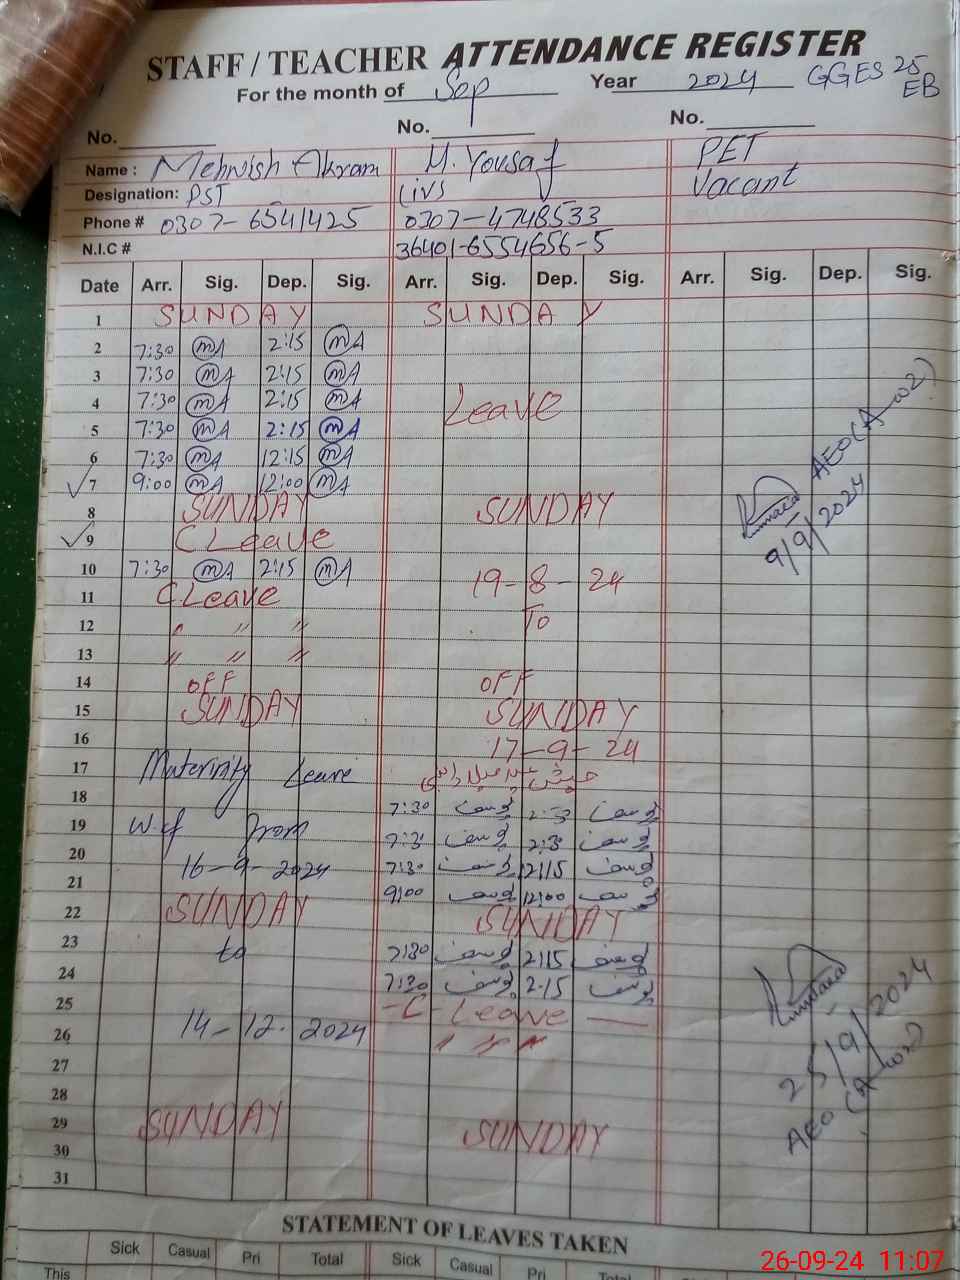 STAFF / TEACHER ATTENDANCE REGISTER
For the month of Sep Year 2024 GGES 25 EB
No. No. No.
Name : Mehwish Akram M. Yousaf PET
Designation: PST Civs Vacant
Phone # 0307-6541425 0307-4748533
N.I.C # 36401-6554656-5
Date Arr. Sig. Dep. Sig. Arr. Sig. Dep. Sig. Arr. Sig. Dep. Sig.
1 SUNDAY SUNDAY
2 7:30 MA 2:15 MA
3 7:30 MA 2:15 MA
4 7:30 MA 2:15 MA Leave
5 7:30 MA 2:15 MA
6 7:30 MA 12:15 MA
7 9:00 MA 12:00 MA
8 SUNDAY SUNDAY
9 C Leave
10 7:30 MA 2:15 MA 19-8-24
11 C Leave
12 " " " To
13 " " "
14 OFF OFF
15 SUNDAY SUNDAY
16 17-9-24
17 Maternity Leave
18 7:30 یوسف 2:30 یوسف
19 w.e.f from 7:30 یوسف 2:30 یوسف
20 16-9-2024 7:30 یوسف 12:15 یوسف
21 9:00 یوسف 12:00 یوسف
22 SUNDAY SUNDAY
23 to 7:30 یوسف 2:15 یوسف
24 7:30 یوسف 2:15 یوسف
25 -C-Leave
26 14-12-2024 " " "
27
28
29 SUNDAY SUNDAY
30
31
AEO (A-w2)
9/9/2024
25/9/2024
AEO (A-w2)
STATEMENT OF LEAVES TAKEN
Sick Casual Pri Total Sick Casual Pri Total Sick Casual
This
26-09-24 11:07